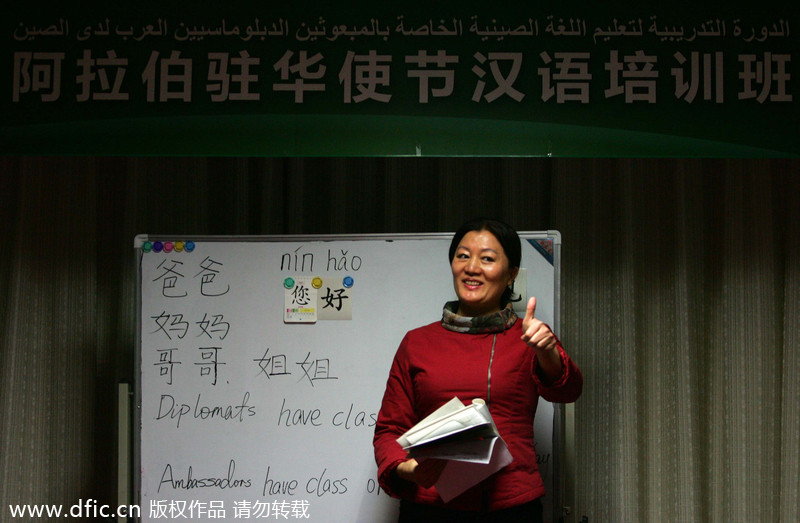 الدورة التدريبية لتعليم اللغة الصينية الخاصة بالمبعوثين الدبلوماسيين العرب لدى الصين
阿拉伯驻华使节汉语培训班
爸爸 nín hǎo
您 好
妈妈
哥哥. 姐姐
Diplomats have clas
Ambassadors have class o
www.dfic.cn 版权作品 请勿转载